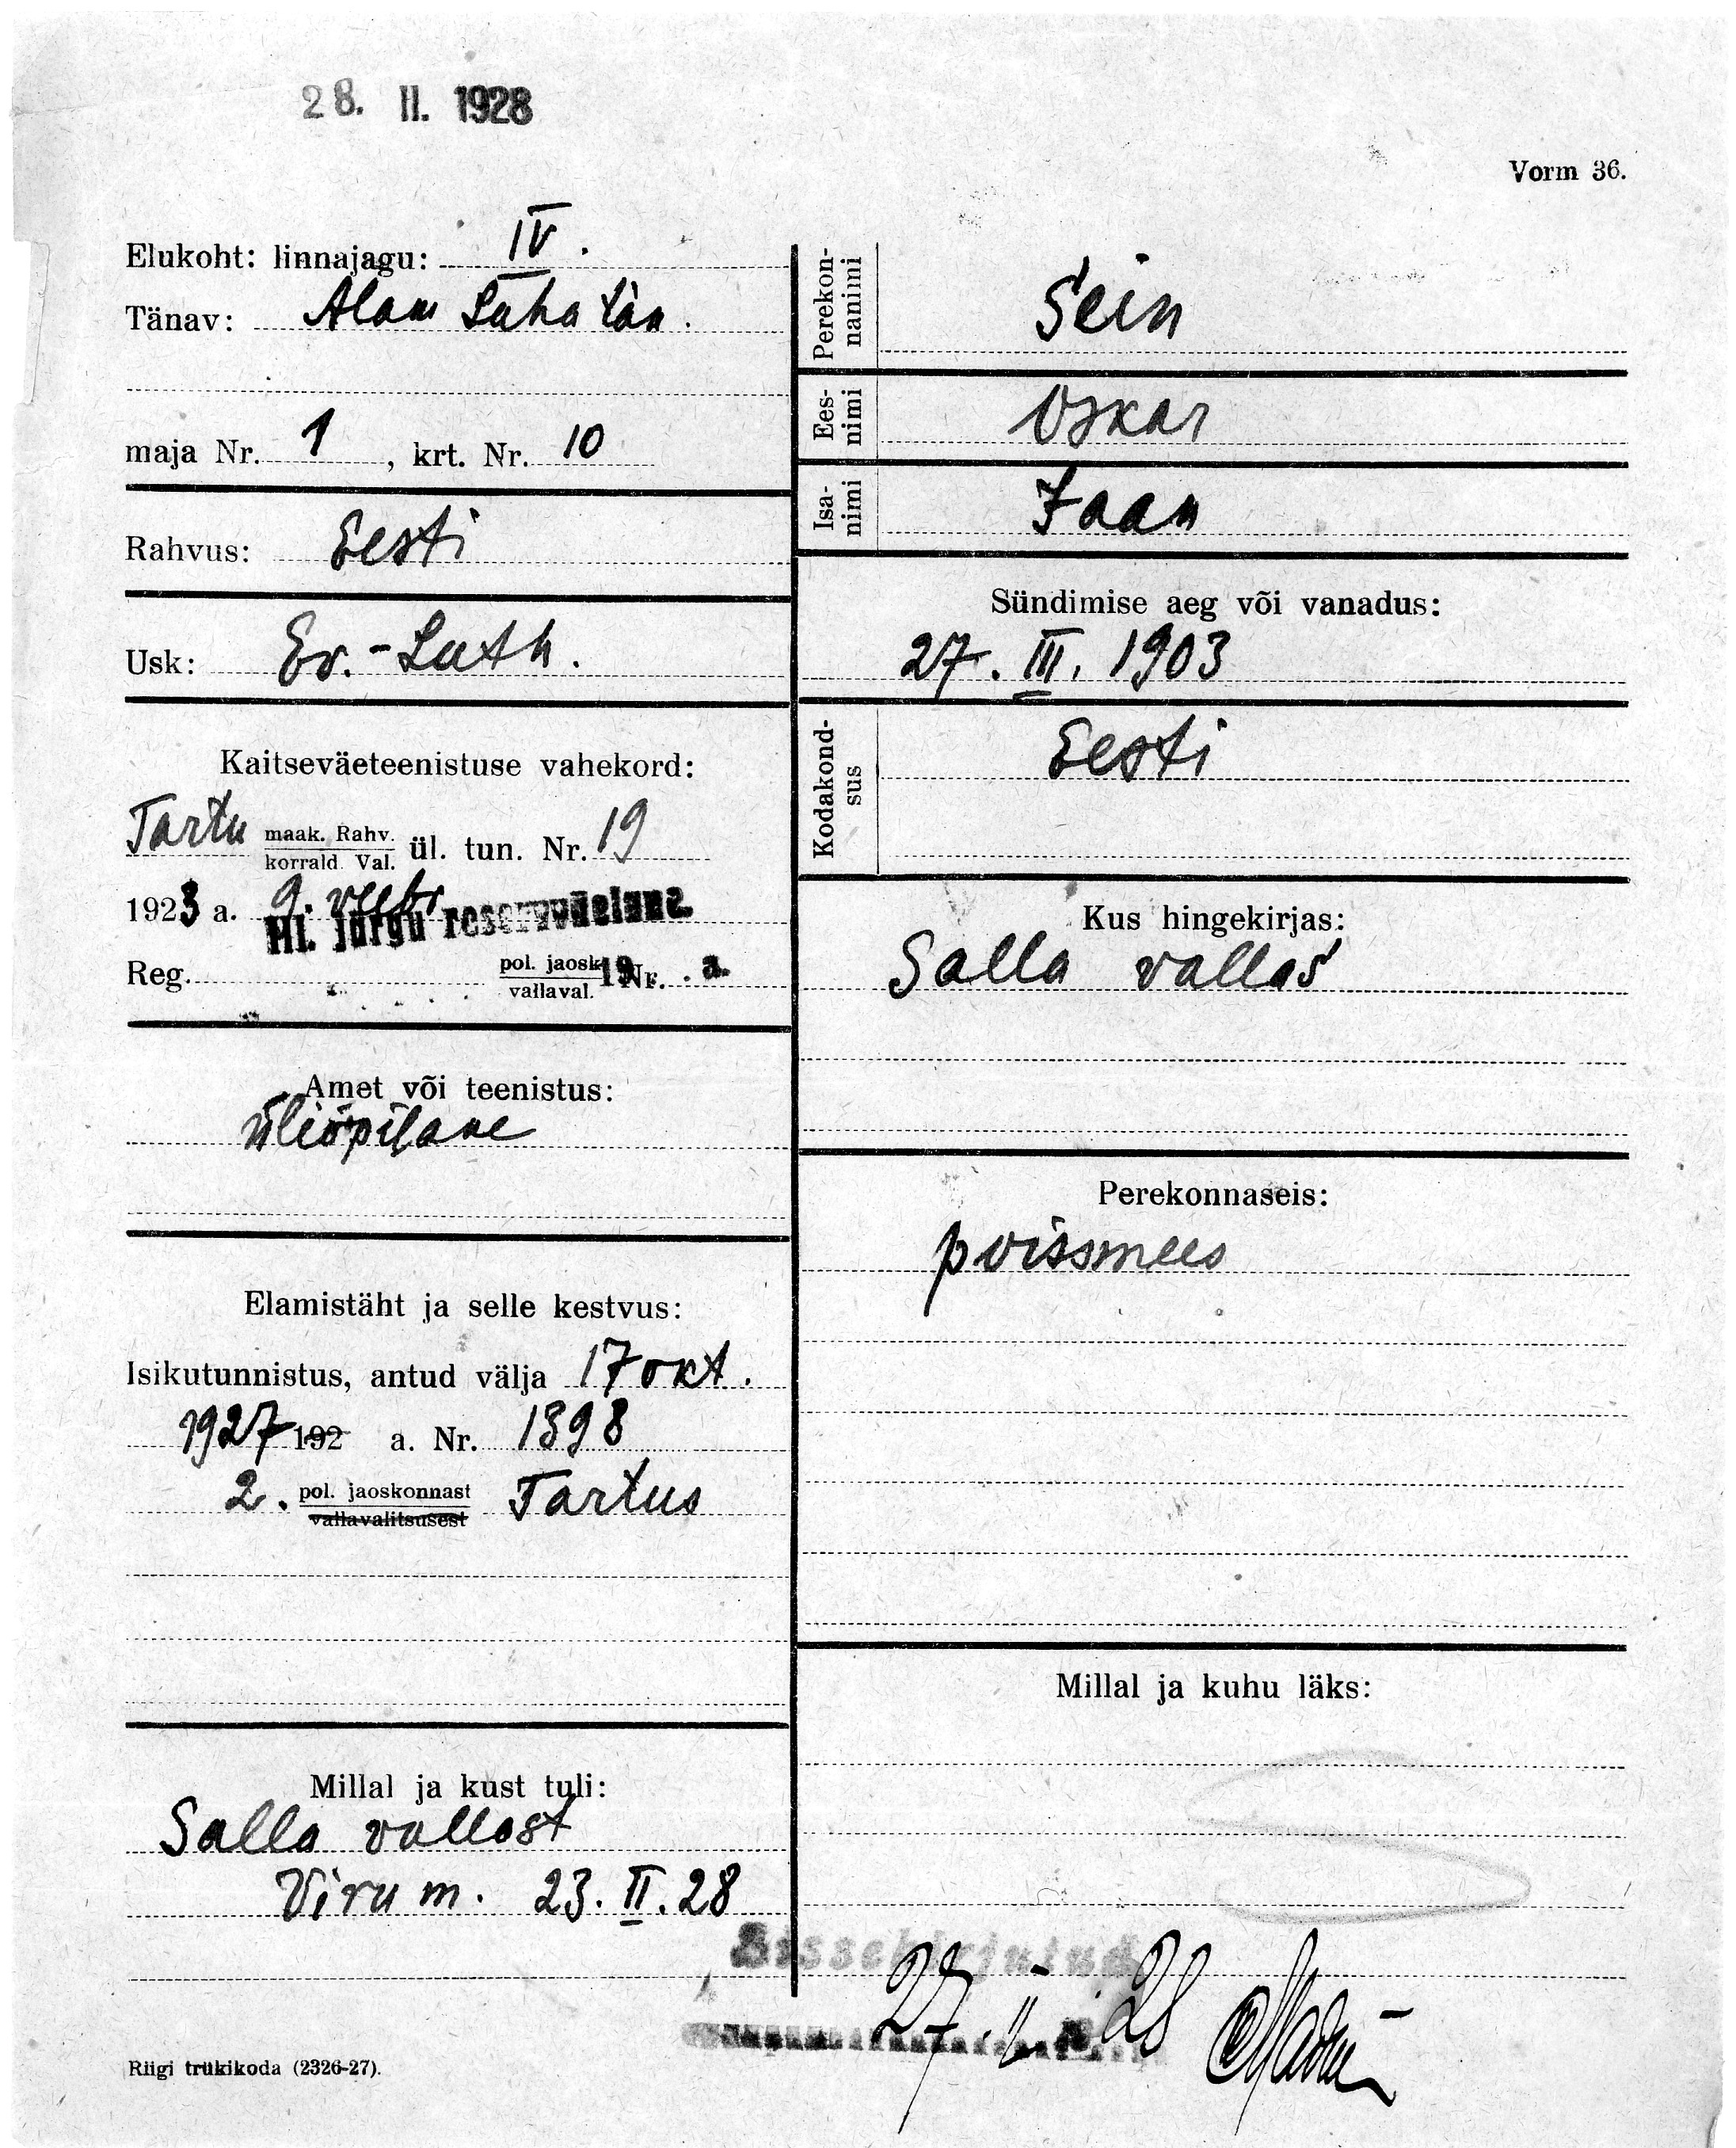 28. II. 1928
Vorm 36.
Elukoht: linnajagu: IV.
Tänav: Alam Luha tän.
maja Nr. 1, krt. Nr. 10
Rahvus: Eesti
Usk: Ev.-Luth.
Kaitseväeteenistuse vahekord:
Tartu maak. Rahv. korrald. Val. ül. tun. Nr. 19
1923 a. 9. veebr
Hl. järgu reservväelane
Reg. pol. jaosk. vallaval. 19 Nr. a.
Amet või teenistus:
üliõpilane
Elamistäht ja selle kestvus:
Isikutunnistus, antud välja 17 okt.
1927 192 a. Nr. 1898
2. pol. jaoskonnast vallavalitsusest Tartus
Millal ja kust tuli:
Salla vallast
Viru m. 23. II. 28
Perekon-
nanimi
Sein
Ees-
nimi
Oskar
Isa-
nimi
Jaan
Sündimise aeg või vanadus:
27. III. 1903
Kodakond-
sus
Eesti
Kus hingekirjas:
Salla vallas
Perekonnaseis:
poissmees
Millal ja kuhu läks:
Sissekirjutud
27. II 28
Riigi trükikoda (2326-27).